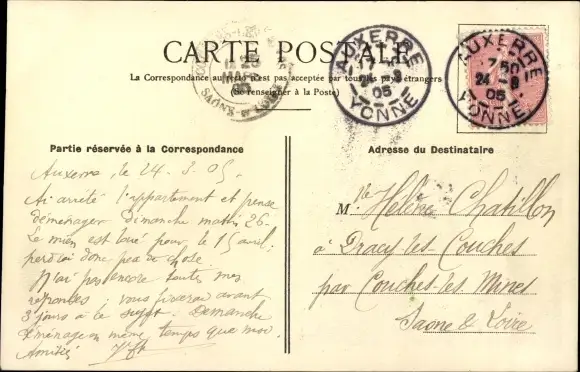 CARTE POSTALE
La Correspondance au recto n'est pas acceptée par tous les pays étrangers
(Se renseigner à la Poste)
AUXERRE
24 -3
05
YONNE
AUXERRE
7 50
24 -3
05
YONNE
SAONE-&-LOIRE
Partie réservée à la Correspondance
Auxerre, le 24. 3. 05.
Ai arrêté l'appartement et pense
déménager Dimanche matin 26.
Le mien est loué pour le 15 avril;
perdrai donc peu de chose.
N'ai pas encore toutes mes
réponses; vous fixerai avant
3 jours à ce sujet. Demanche
déménage en même temps que moi.
Amitiés
Adresse du Destinataire
Mlle Hélène Chatillon
à Dracy-les-Couches
par Couches-les-Mines
Saone & Loire